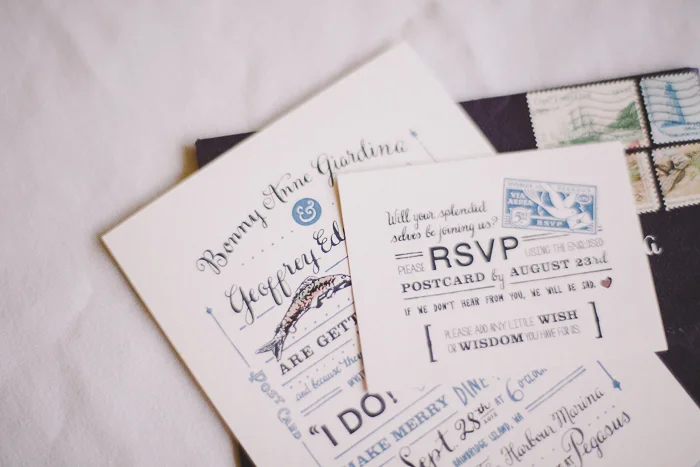 Bonny Anne Giardina
&
Geoffrey Ed
ARE GETT
and because the
"I DO!
MAKE MERRY DINE
6 O'CLOCK
Sept 28th
BAINBRIDGE ISLAND, WA
Harbour Marina
Pegasus
POST CARD
Will your splendid
selves be joining us?
VIA
AEREA
5c
RSVP
PLEASE RSVP USING THE ENCLOSED
POSTCARD by AUGUST 23rd
IF WE DON'T HEAR FROM YOU, WE WILL BE SAD.
PLEASE ADD ANY LITTLE WISH
OR WISDOM YOU HAVE FOR US.